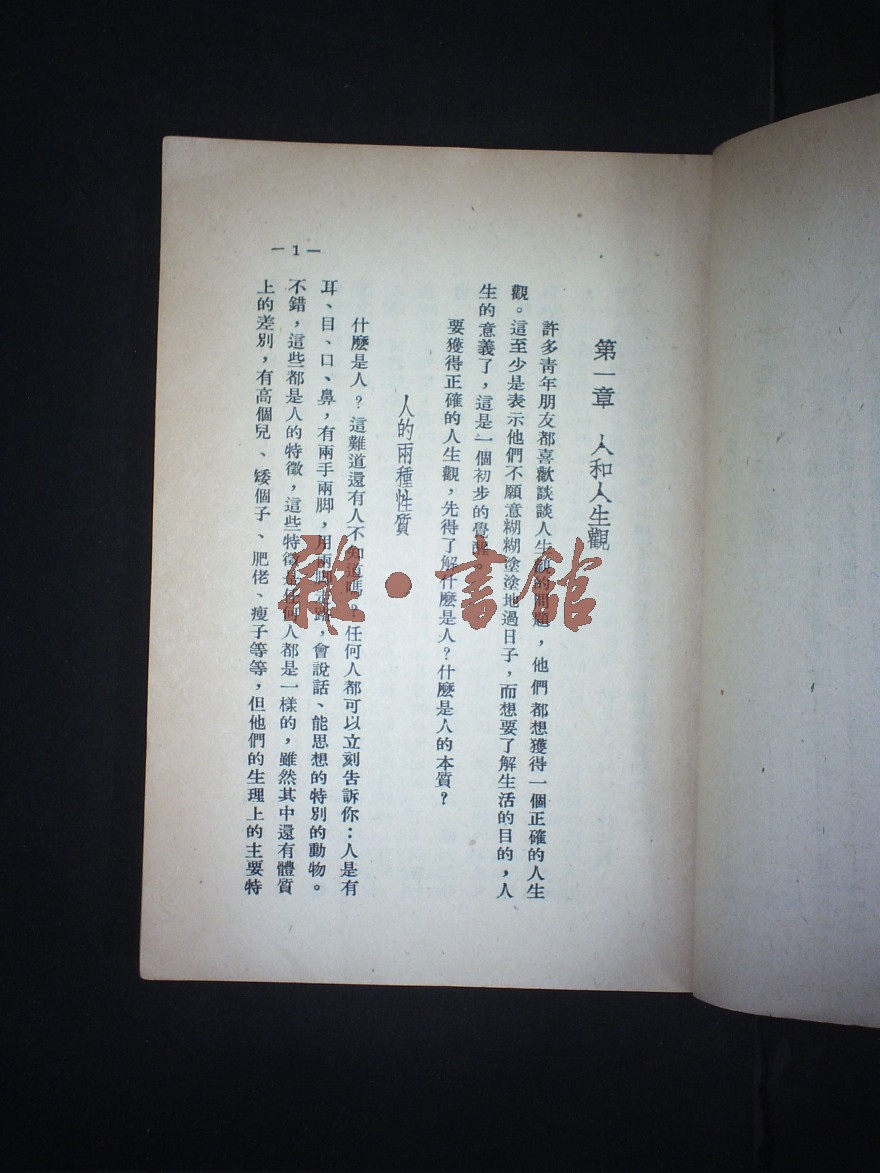 第一章　人和人生觀
許多青年朋友都喜歡談談人生觀的問題，他們都想獲得一個正確的人生
觀。這至少是表示他們不願意糊糊塗塗地過日子，而想要了解生活的目的，人
生的意義了，這是一個初步的覺醒。
要獲得正確的人生觀，先得了解什麼是人？什麼是人的本質？
人的兩種性質
什麼是人？這難道還有人不知道嗎？任何人都可以立刻告訴你：人是有
耳、目、口、鼻，有兩手兩脚，用兩脚走路，會說話、能思想的特別的動物。
不錯，這些都是人的特徵，這些特徵是任何人都是一樣的，雖然其中還有體質
上的差別，有高個兒、矮個子、肥佬、瘦子等等，但他們的生理上的主要特
—1—
雜·書館